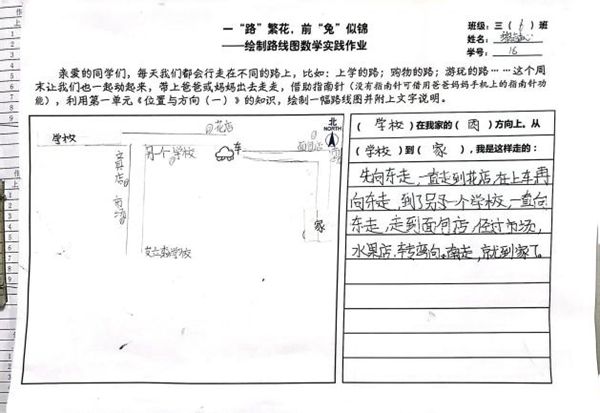 一“路”繁花，前“兔”似锦
——绘制路线图数学实践作业
班级：三（6）班
姓名：
学号：16
亲爱的同学们，每天我们都会行走在不同的路上，比如：上学的路；购物的路；游玩的路……这个周
末让我们也一起动起来，带上爸爸或妈妈出去走走，借助指南针（没有指南针可借用爸爸妈妈手机上的指南针功
能），利用第一单元《位置与方向（一）》的知识，绘制一幅路线图并附上文字说明。
学校
花店
北
NORTH
另一个学校
车
面包店
文具店
市场
家
（学校）在我家的（西）方向上。从
（学校）到（家），我是这样走的：
先向东走，一直走到花店，在上车再
向东走，到了另一个学校，一直向
东走，走到面包店，经过市场，
水果店，转弯向。南走，就到家了。